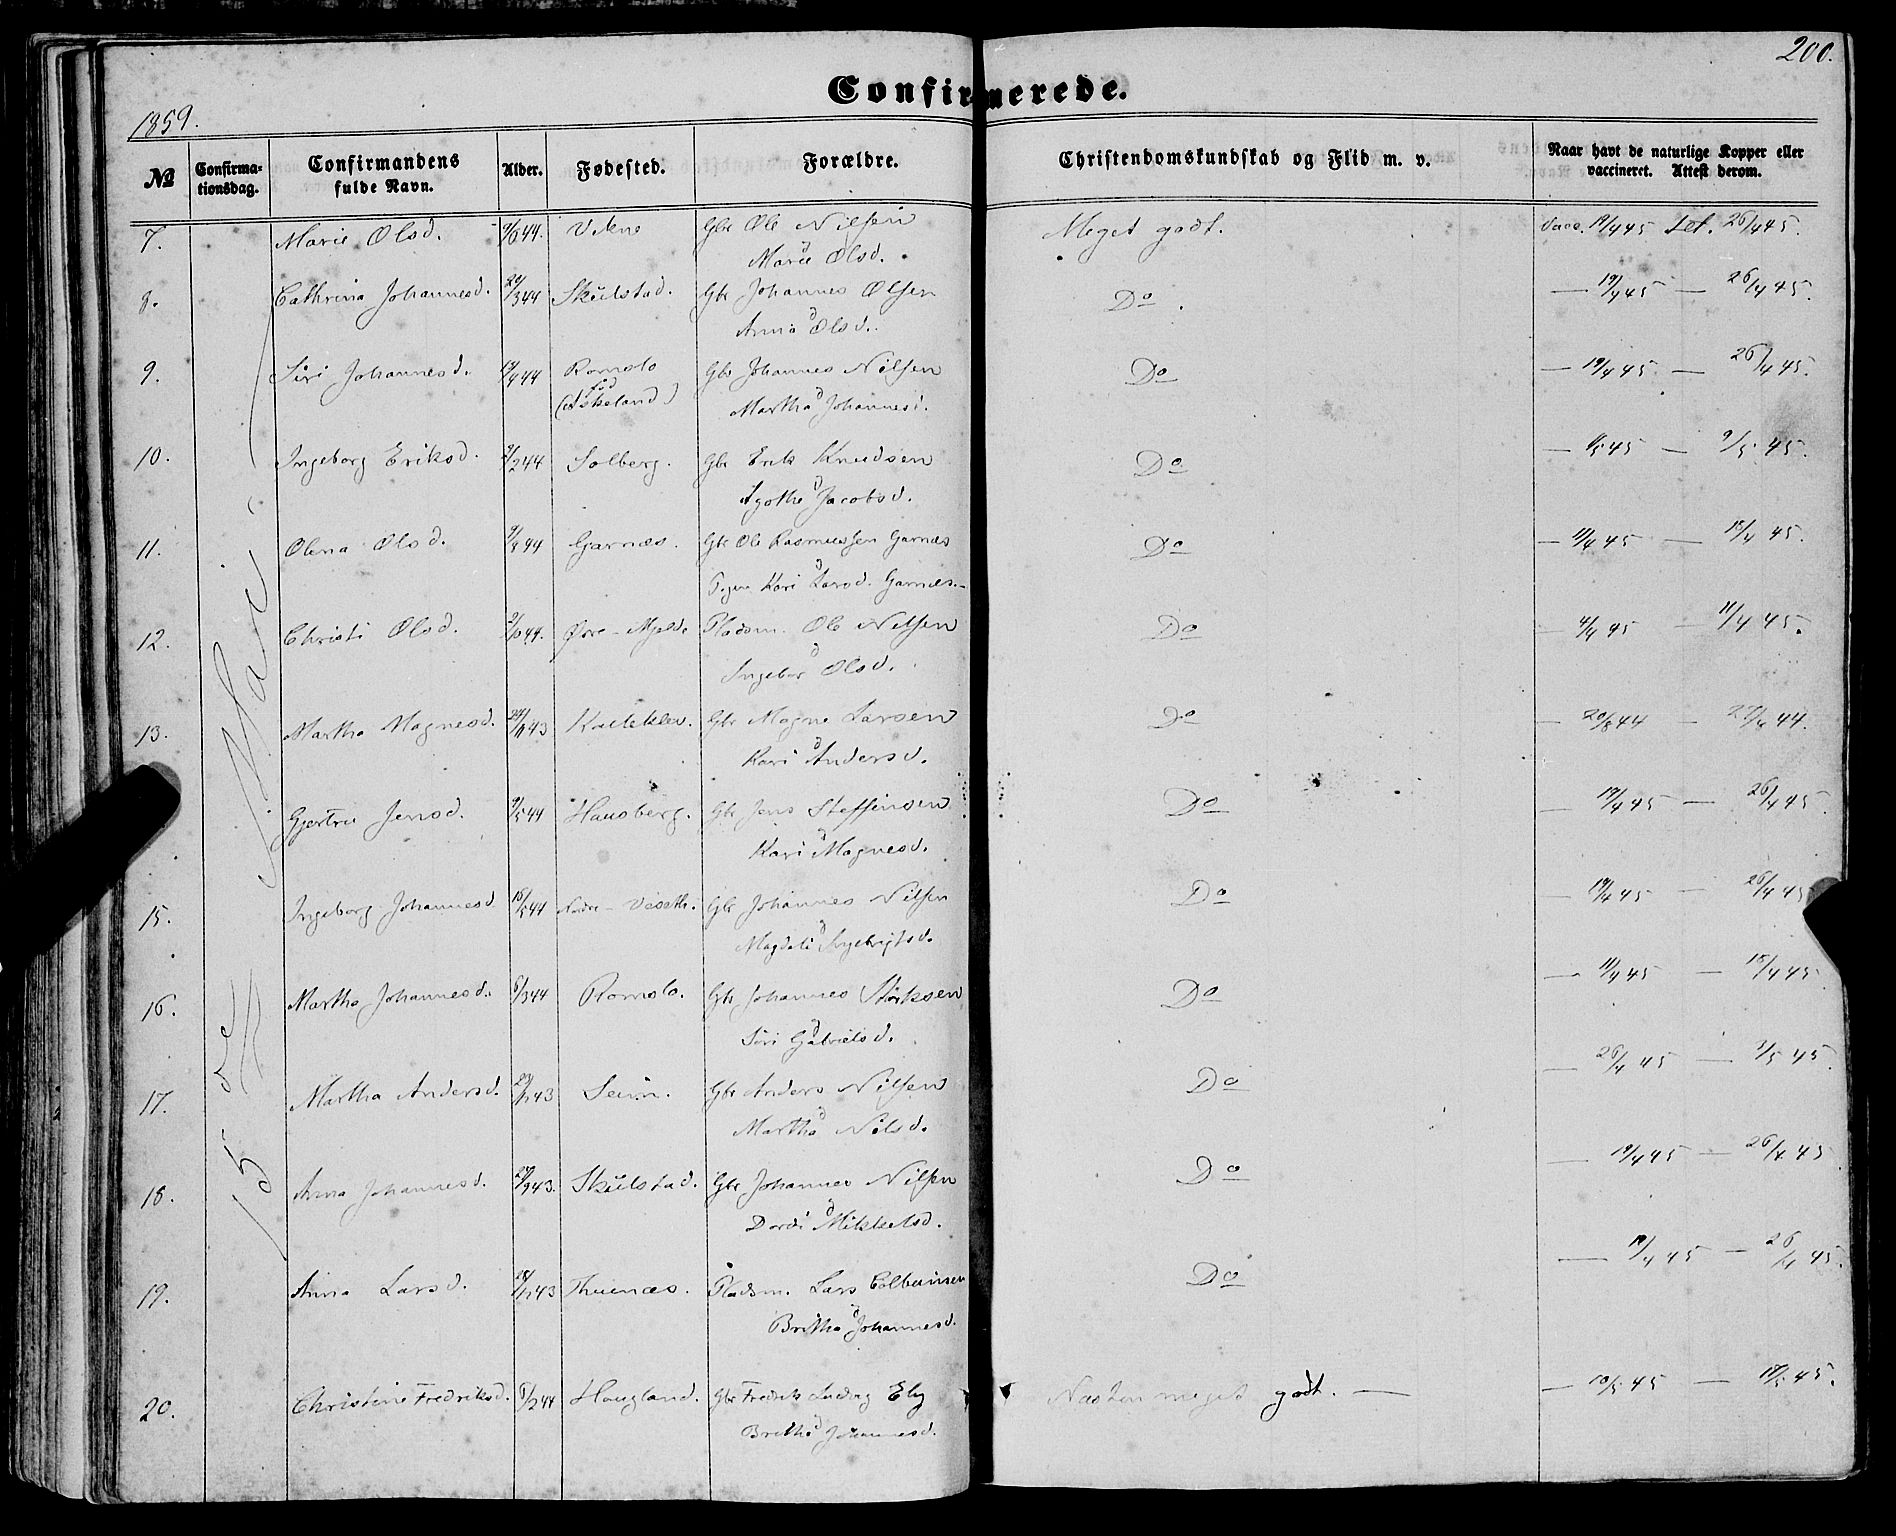 200.
Confirmerede.
1859.
№ Confirmationsdag. Confirmandens fulde Navn. Alder. Fødested. Forældre. Christendomskundskab og Flid m. v. Naar havt de naturlige Kopper eller vaccineret. Attest derom.
7. Marie Olsd. 44. Vikne Gbr Ole Nilsen Meget godt. Vacc. 19/4 45 26/4 45.
Marie Olsd.
8. Cathrina Johannesd. 3 44 Skulstad. Gbr Johannes Olsen Do. — 19/4 45 — 26/4 45.
Anna Olsd.
9. Siri Johannesd. 4 44 Romslo Gbr Johannes Nilsen Do — 19/4 45. — 26/4 45.
(Askeland) Martha Johannesd.
10. Ingeborg Eriksd. 2 44 Solberg. Gbr Erik Knudsen Do — 5 45 — 9/5 45.
Agathe Jacobsd.
11. Olena Olsd. 44 Garnæs. Gbr Ole Rasmussen Garnæs Do — 11/4 45 — 18/4 45.
Pigen Kari Larsd. Garnæs.
12. Christi Olsd. 44. Øvre-Mjelde Pladsm. Ole Nilsen Do — 4/4 45 — 11/4 45.
Ingebor Olsd.
13. Martha Magnesd. 43 Gbr Magne Larsen Do — 20/8 44 — 44.
Kari Andersd.
Gjertru Jensd. 9/5 44 Hausberg. Gbr Jens Steffensen Do — 19/4 45 — 26/4 45.
Kari Magnesd.
15. Ingeborg Johannesd. 44 Nedre-Viseth. Gbr Johannes Nilsen Do — 19/4 45 — 26/4 45
Magdeli
16. Martha Johannesd. 6/3 44 Romslo. Gbr Johannes Størksen Do — 11/4 45 — 18/4 45
Siri Gabrielsd.
17. Martha Andersd. 43 Seim. Gbr Anders Nilsen Do — 26/4 45 — 5 45.
Martha Nilsd.
18. Anna Johannesd. 9 43. Skulstad. Gbr Johannes Nilsen Do — 19/4 45 — 26/4 45
Dordi Mikkelsd.
19. Anna Larsd. 43 Thuenæs. Pladsm. Lars Colbeinsen Do — 19/4 45 — 26/4 45.
Britha Johannesd.
20. Christine Fredriksd. 6/2 44 Haugland. Gbr Fredrik Ludvig Ely Næsten meget godt. — — 10/5 45 — 45.
Britha Johannesd.
15